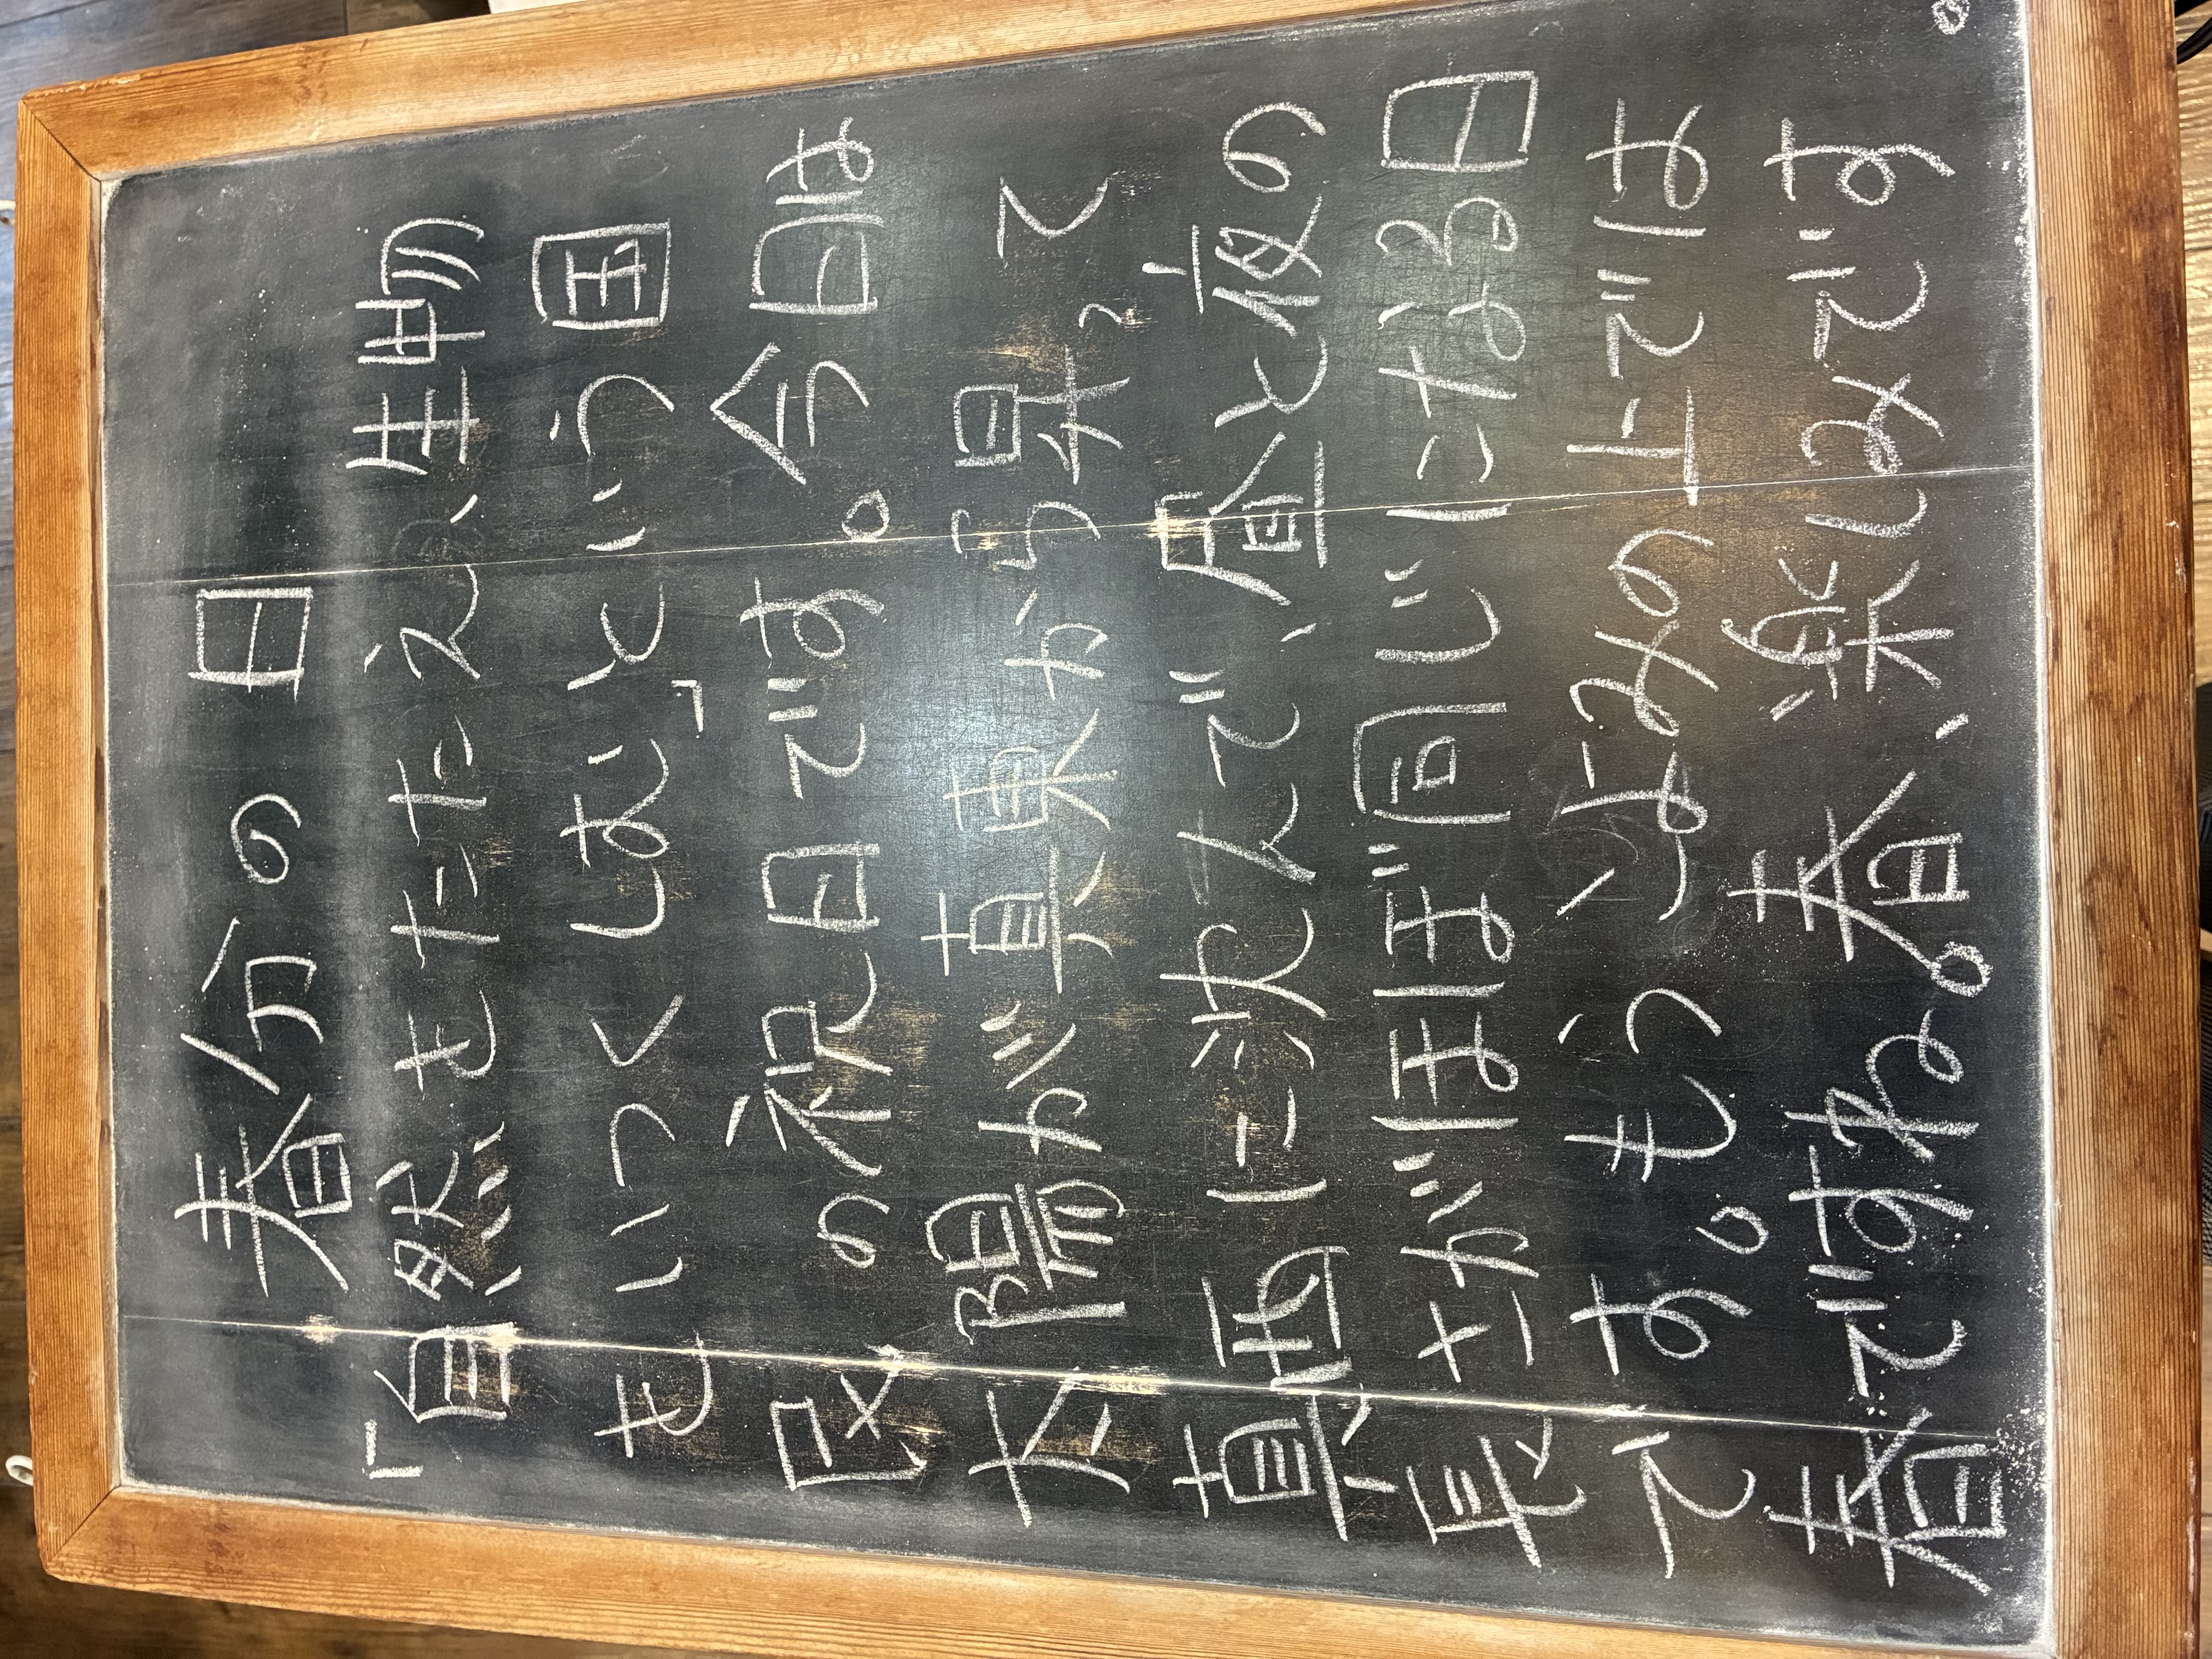 春分の日
「自然をたたえ、生物
をいつくしむ」という国
民の祝日です。今日は
太陽が真東から昇って
真西に沈んで、昼と夜の
長さがほぼ同じになる日
です。もう こよみの上では
春ですね。春、楽しみです。